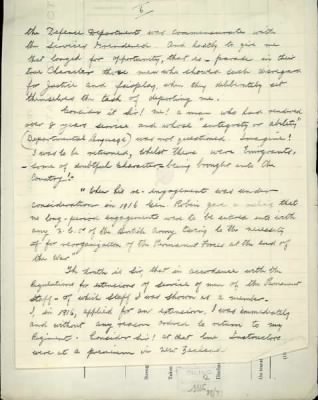 5
the Defence Department was commensurate with
the services rendered. And lastly to give me
that longed for opportunity, that is - parade in their
true character those men who showed such disregard
for justice and fairplay, when they deliberately set
themselves the task of deporting me.
Consider it Sir! me! a man who had rendered
over 8 years service and whose integrity or ability
(Departmental language) was not questioned. Imagine!
I was to be returned, whilst there were Emigrants,
- some of doubtful character - being brought into the
Country!"
"When his re-engagement was under
consideration in 1916 Gen. Robin gave a ruling that
no long-period engagements were to be entered into with
any N.C.O. of the British Army owing to the necessity
of for reorganization of the Permanent Forces at the end of
the War"
The truth is Sir, that in accordance with the
Regulations for extensions of service of men of the Permanent
Staff - of which staff I was shown as a member.
I, in 1916, applied for an extension. I was immediately
and without any reason ordered to return to my
Regiment. Consider Sir! at that time Instructors
were at a premium in New Zealand.